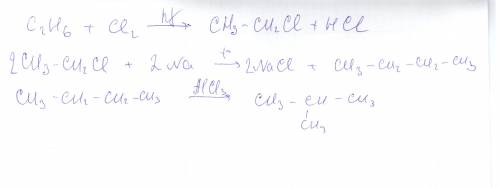 C₂H₆ + Cl₂ —hν→ CH₃ – CH₂Cl + HCl
2CH₃ – CH₂Cl + 2Na —t→ 2NaCl + CH₃ – CH₂ – CH₂ – CH₃
CH₃ – CH₂ – CH₂ – CH₃ —AlCl₃→ CH₃ – CH – CH₃
CH₃